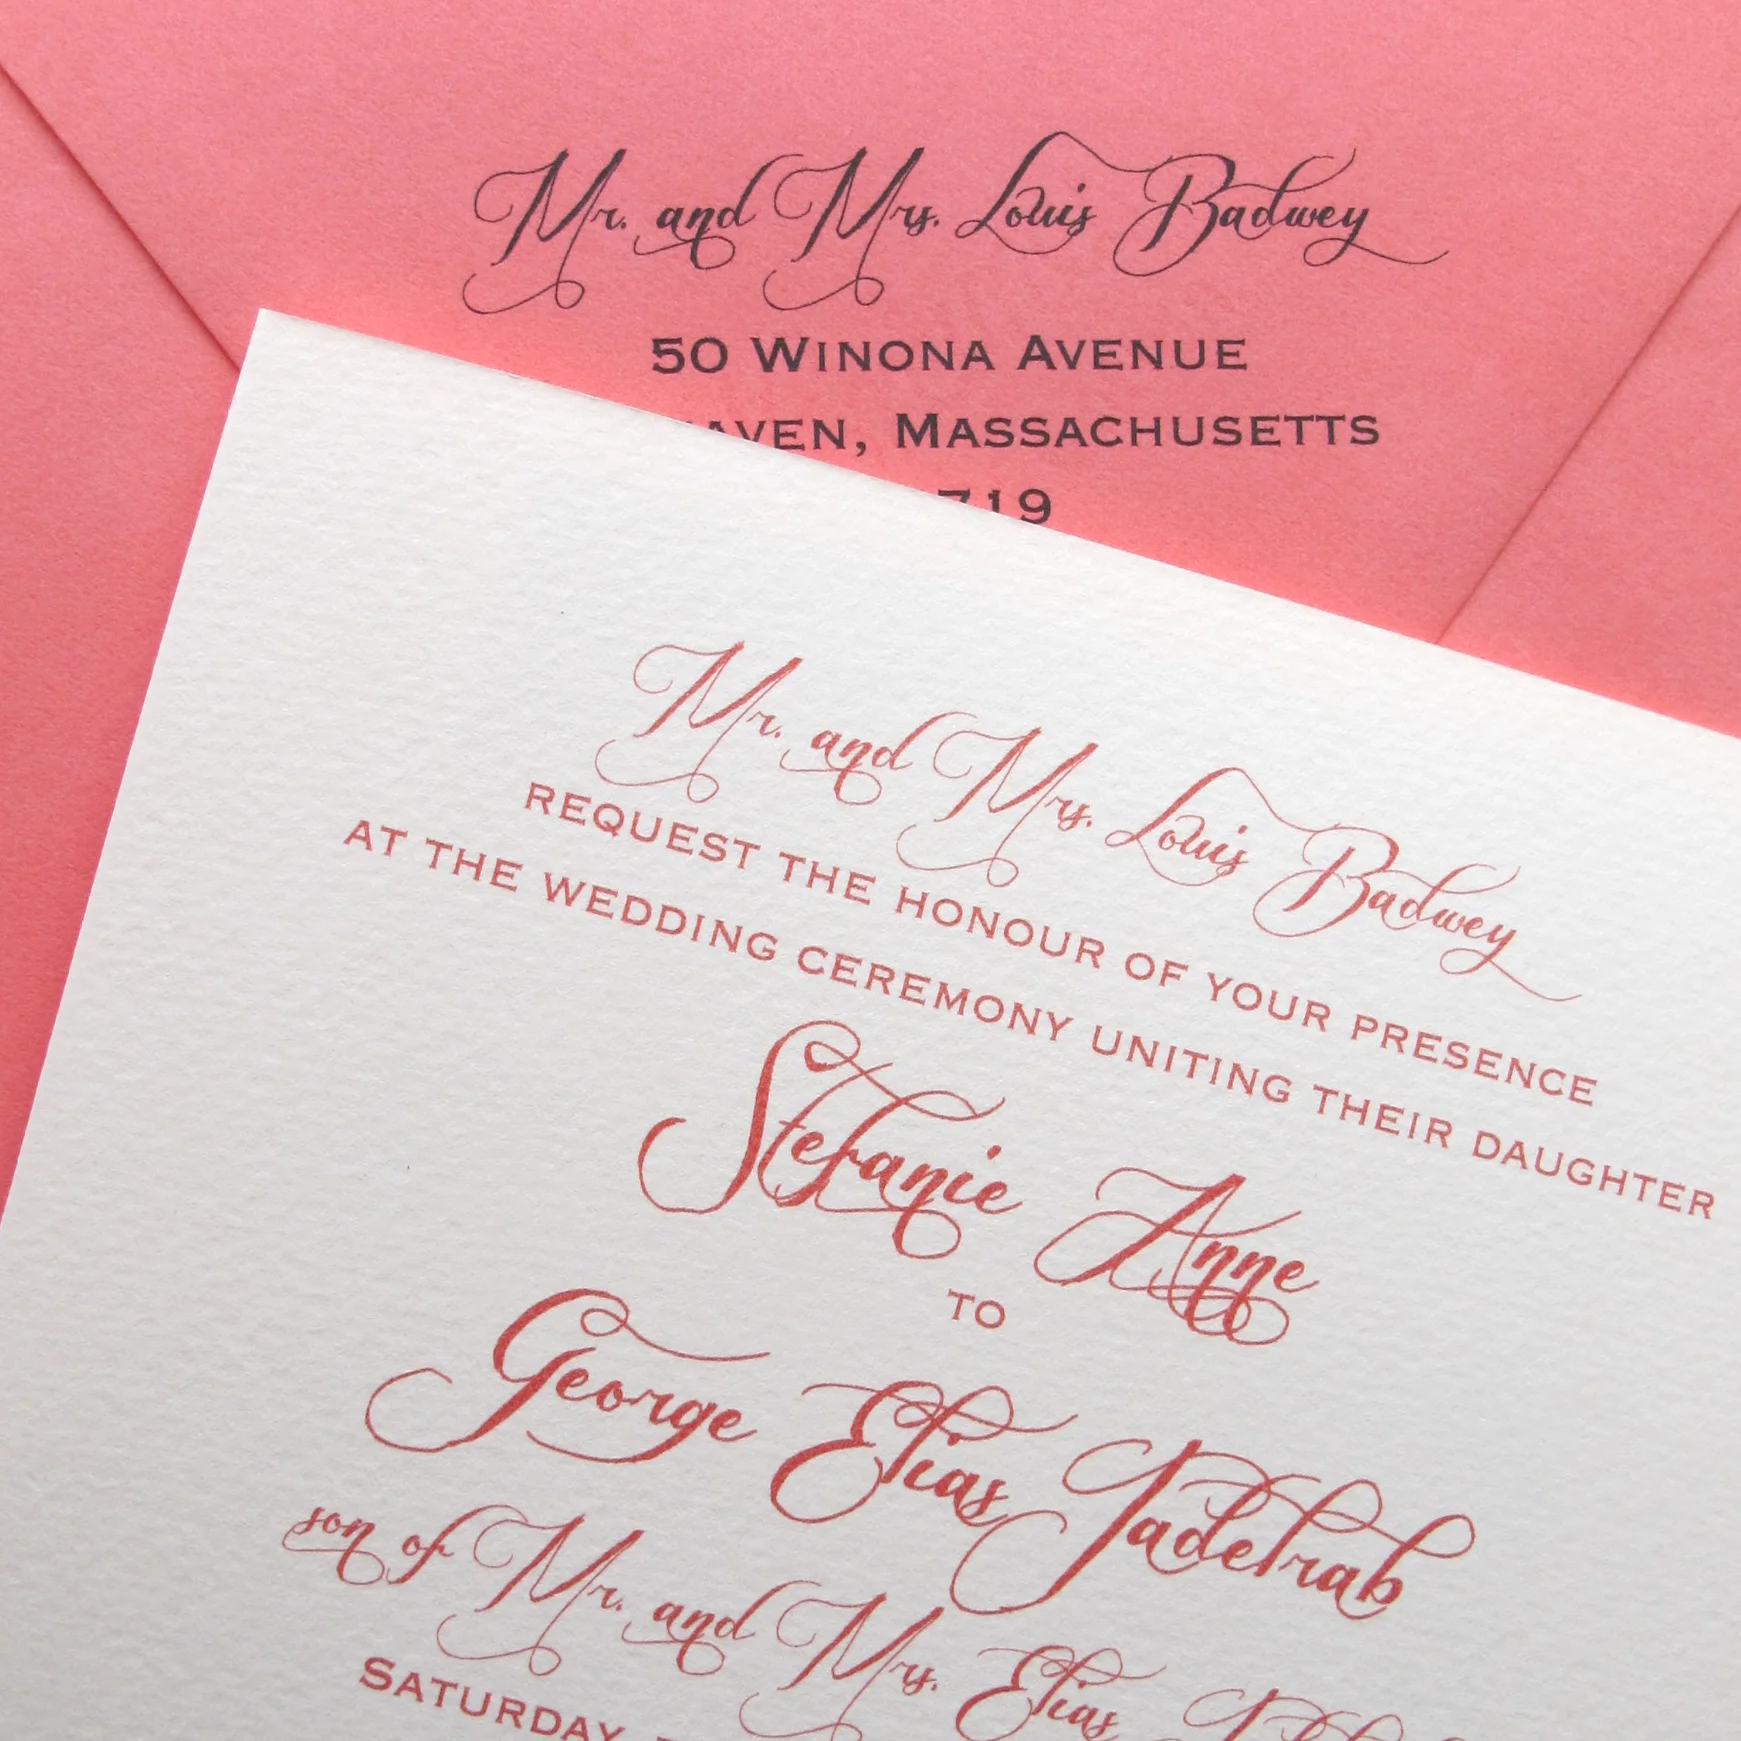 Mr. and Mrs. Louis Badwey
50 WINONA AVENUE
AVEN, MASSACHUSETTS
719
Mr. and Mrs. Louis Badwey
REQUEST THE HONOUR OF YOUR PRESENCE
AT THE WEDDING CEREMONY UNITING THEIR DAUGHTER
Stefanie Anne
TO
George Elias Jadelrab
son of Mr. and Mrs. Elias
SATURDAY